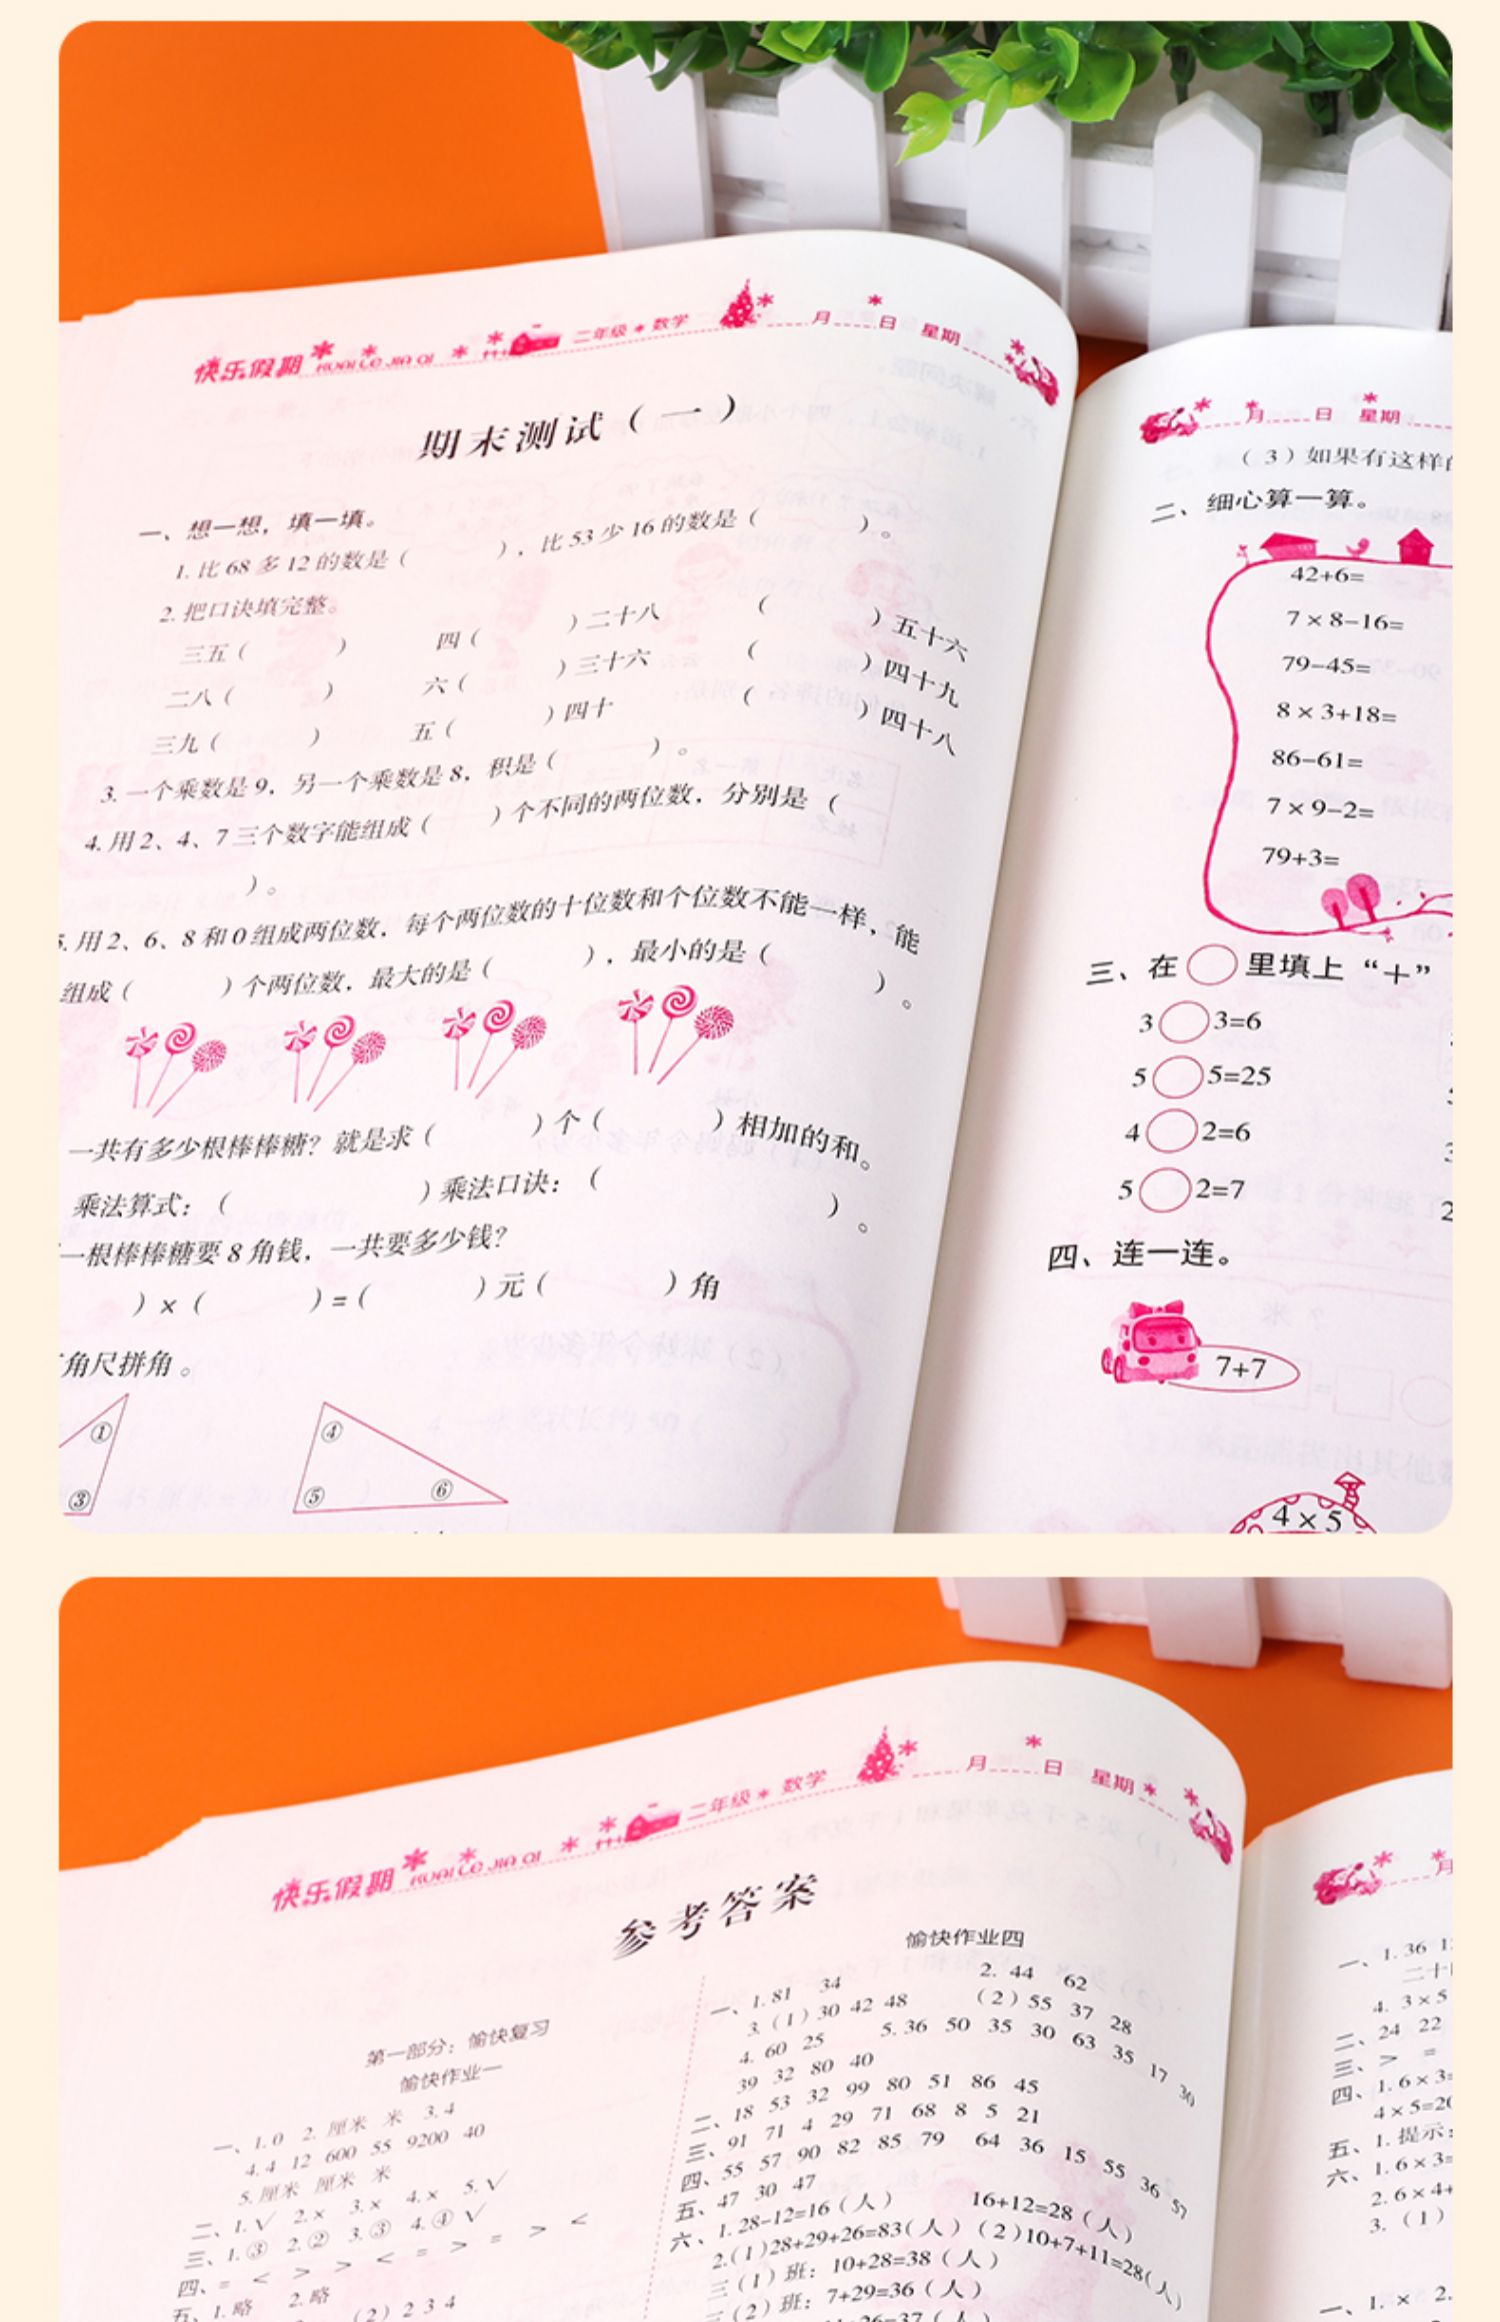 快乐假期 KUAI LE JIA QI 二年级 数学 月 日 星期
期末测试（一）
一、想一想，填一填。
1. 比 68 多 12 的数是（ ），比 53 少 16 的数是（ ）。
2. 把口诀填完整。
三五（ ） 四（ ）二十八 （ ）五十六
二八（ ） 六（ ）三十六 （ ）四十九
三九（ ） 五（ ）四十 （ ）四十八
3. 一个乘数是 9，另一个乘数是 8，积是（ ）。
4. 用 2、4、7 三个数字能组成（ ）个不同的两位数，分别是（
）。
5. 用 2、6、8 和 0 组成两位数，每个两位数的十位数和个位数不能一样，能
组成（ ）个两位数，最大的是（ ），最小的是（ ）。
一共有多少根棒棒糖？就是求（ ）个（ ）相加的和。
乘法算式：（ ）乘法口诀：（ ）。
一根棒棒糖要 8 角钱，一共要多少钱？
）×（ ）=（ ）元（ ）角
角尺拼角。
① ③ ④ ⑤ ⑥
月 日 星期
（3）如果有这样
二、细心算一算。
42+6=
7×8-16=
79-45=
8×3+18=
86-61=
7×9-2=
79+3=
三、在 ○ 里填上“+”
3 ○ 3=6
5 ○ 5=25
4 ○ 2=6
5 ○ 2=7
四、连一连。
7+7
4×5
快乐假期 KUAI LE JIA QI 二年级 数学 月 日 星期
参考答案
第一部分：愉快复习
愉快作业一
一、1.0 2.厘米 米 3.4
4.4 12 600 55 9200 40
5.厘米 厘米 米
二、1.√ 2.× 3.× 4.× 5.√
三、1.③ 2.② 3.③ 4.④ √
四、= < > > < = > = > <
五、1.略 2.略
（2）2 3 4
愉快作业四
一、1.81 34 2. 44 62
3.（1）30 42 48 （2）55 37 28
4. 60 25 5. 36 50 35 30 63 35 17 30
39 32 80 40
二、18 53 32 99 80 51 86 45
三、91 71 4 29 71 68 8 5 21
四、55 57 90 82 85 79 64 36 15 55 36 57
五、47 30 47
六、1. 28-12=16（人） 16+12=28（人）
2.（1）28+29+26=83（人）（2）10+7+11=28（人）
三（1）班：10+28=38（人）
三（2）班：7+29=36（人）
11+26=37（人）
月
一、1. 36
二十
4. 3×5
二、24 22
三、> =
四、1. 6×3=
4×5=20
五、1. 提示：
六、1. 6×3=
2. 6×4+
3.（1）
一、1. × 2.